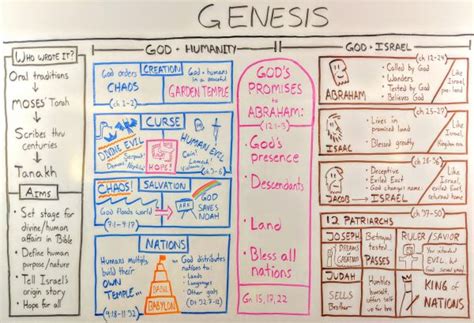 GENESIS
WHO WROTE IT?
Oral traditions
MOSES' Torah
Scribes thru
centuries
Tanakh
AIMS
• Set stage for
divine/human
affairs in Bible
• Define human
purpose/nature
• Tell Israel's
origin story
• Hope for all
GOD + HUMANITY
CREATION
God orders
CHAOS
(ch 1-2)
God + humans
in a peaceful
GARDEN TEMPLE
CURSE
DIVINE EVIL
Serpent
HOPE!
HUMAN EVIL
CHAOS!
SALVATION
God floods world
GOD
SAVES
NOAH
NATIONS
Humans multiply,
build their
OWN
TEMPLE...
BABYLON
God distributes
nations to:
• Lands
• Languages
• Other gods
(Dt 32:7-8)
(9:18-11:32)
GOD'S
PROMISES
to
ABRAHAM:
(12:1-3)
• God's
presence
• Descendants
• Land
• Bless all
nations
Gn. 15, 17, 22
GOD + ISRAEL
(ch 12-24)
ABRAHAM
• Called by God
• Wanders
• Tested by God
• Believes God
Like
Israel
(ch 25-27)
ISAAC
• Lives in
promised land
• Blessed greatly
Like
Israel
JACOB → ISRAEL
• Deceptive
• Exiled East
• God changes name
Like
Israel,
exiled East,
returned home
12 PATRIARCHS
(ch 37-50)
JOSEPH
DREAMS
Betrayed
tested...
PASSES
RULER/SAVIOR
"You intended
EVIL, but
God used
JUDAH
SELLS
Brother
Humbles
himself,
offers self
KING of
NATIONS